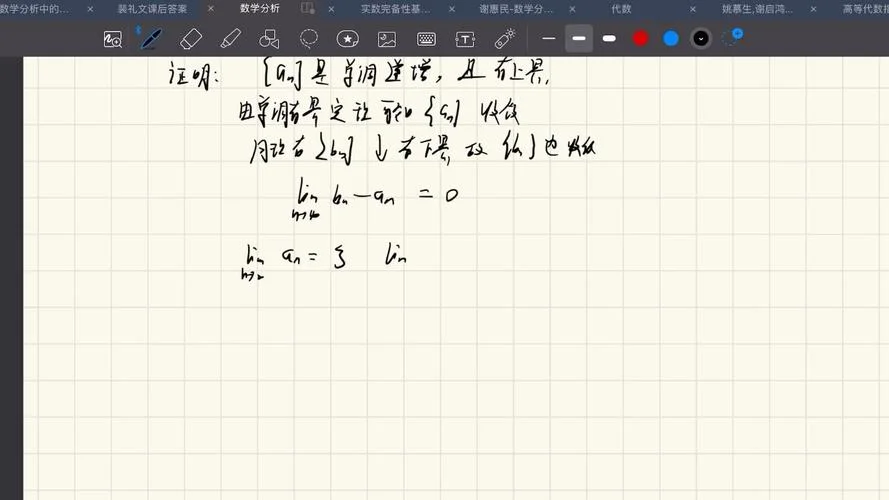 数学分析中的...
裴礼文课后答案
数学分析
实数完备性基...
谢惠民-数学分...
代数
姚慕生,谢启鸿...
高等代数指
证明: {an}是单调递增,且有上界,
由单调有界定理可知{an}收敛
同理有{bn}↓有下界,故{bn}也收敛
lim n→∞ bn-an = 0
lim n→∞ an = ξ lim